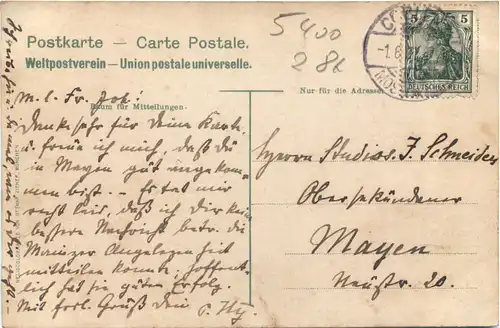 5400
286
Postkarte — Carte Postale.
Weltpostverein — Union postale universelle.
5 5
DEUTSCHES REICH
Raum für Mitteilungen.
Nur für die Adresse
M. l. Fr. Joh!
Danke sehr für Deine Karte,
u. freue ich mich, daß Du
in Mayen gut angekom-
men bist. — Es tat mir
recht leid, daß ich Dir keine
bessere Nachricht betr. die
Mainzer Angelegenheit
mitteilen konnte, hoffent-
lich hat sie guten Erfolg.
Mit Gruß Dein
Herrn Studios. J. Schneider
Obersekundaner
Mayen
Neustr. 20.